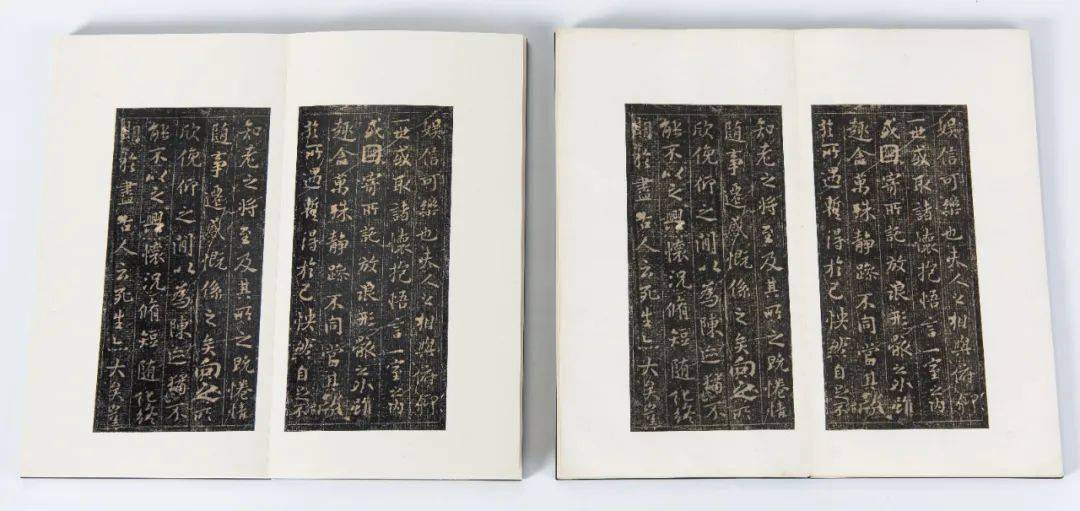 娛信可樂也夫人之相與俯仰
一世或取諸懷抱悟言一室之內
或因寄所託放浪形骸之外雖
趣舍萬殊靜躁不同當其欣
於所遇暫得於己快然自足不
知老之將至及其所之既惓情
隨事遷感慨係之矣向之所
欣俛仰之閒以為陳迹猶不
能不以之興懷況脩短隨化終
期於盡古人云死生亦大矣豈
娛信可樂也夫人之相與俯仰
一世或取諸懷抱悟言一室之內
或因寄所託放浪形骸之外雖
趣舍萬殊靜躁不同當其欣
於所遇暫得於己快然自足不
知老之將至及其所之既惓情
隨事遷感慨係之矣向之所
欣俛仰之閒以為陳迹猶不
能不以之興懷況脩短隨化終
期於盡古人云死生亦大矣豈